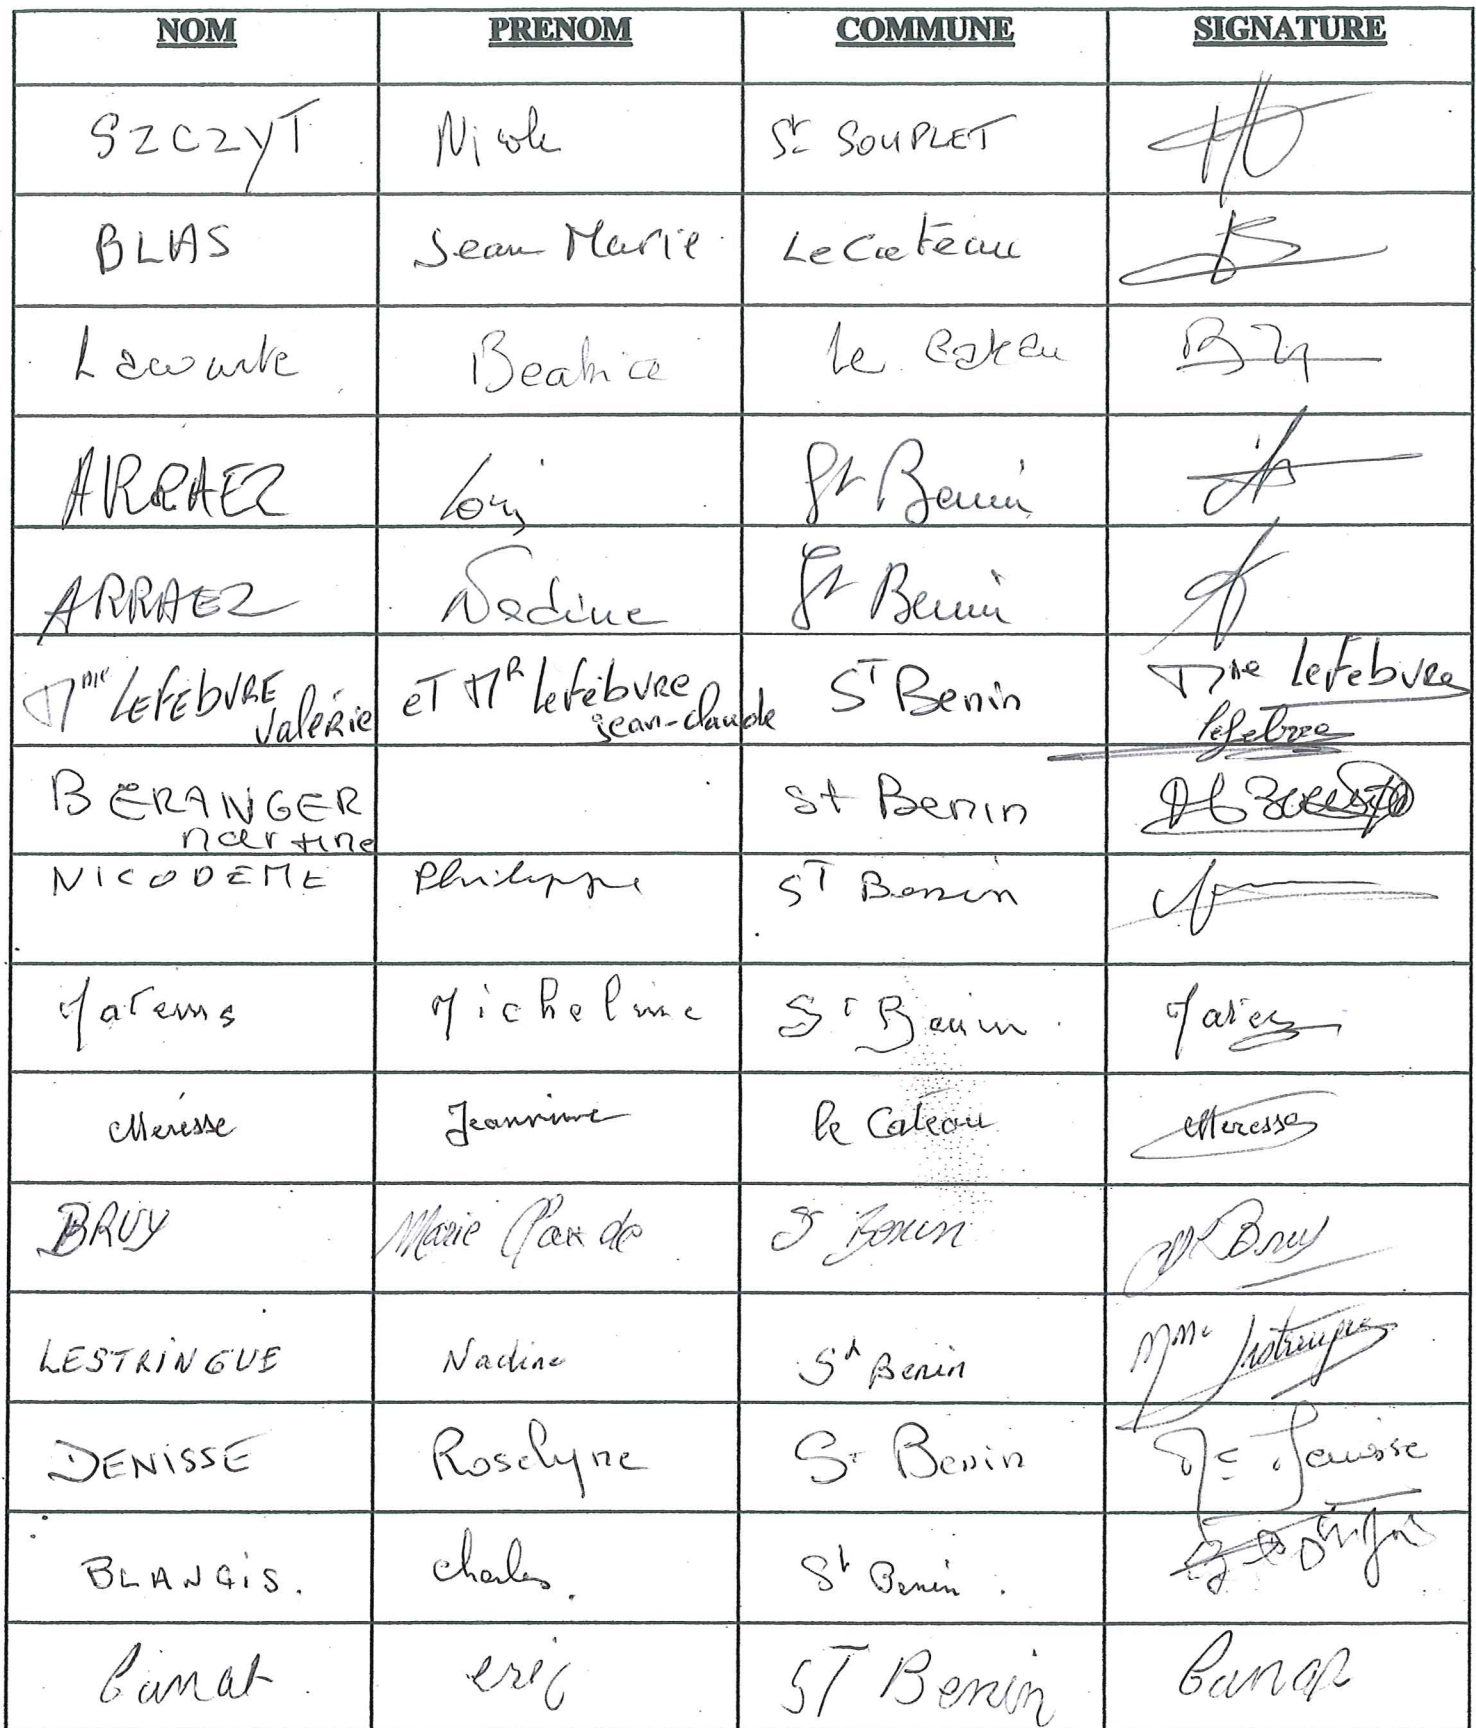 NOM PRENOM COMMUNE SIGNATURE
SZCZYT Nicole St SOUPLET
BLAS Jean Marie Le Cateau
Lacourte Beatrice Le Cateau
ARRAEZ Louis St Benin
ARRAEZ Nadine St Benin
Mme LEFEBVRE eT Mr Lefebvre ST Benin Mme Lefebvre
Valérie jean-claude Lefebvre
BERANGER St Benin
martine
NICODEME Philippe ST Benin
Micheline ST Benin
Meresse Jeannine le Cateau Meresse
BRUY Marie Claude St Benin Bruy
LESTRINGUE Nadine St Benin Mme Lestringue
DENISSE Roselyne St Benin Me Denisse
BLANGIS. Charles. St Benin.
Canat eric ST Benin Canat